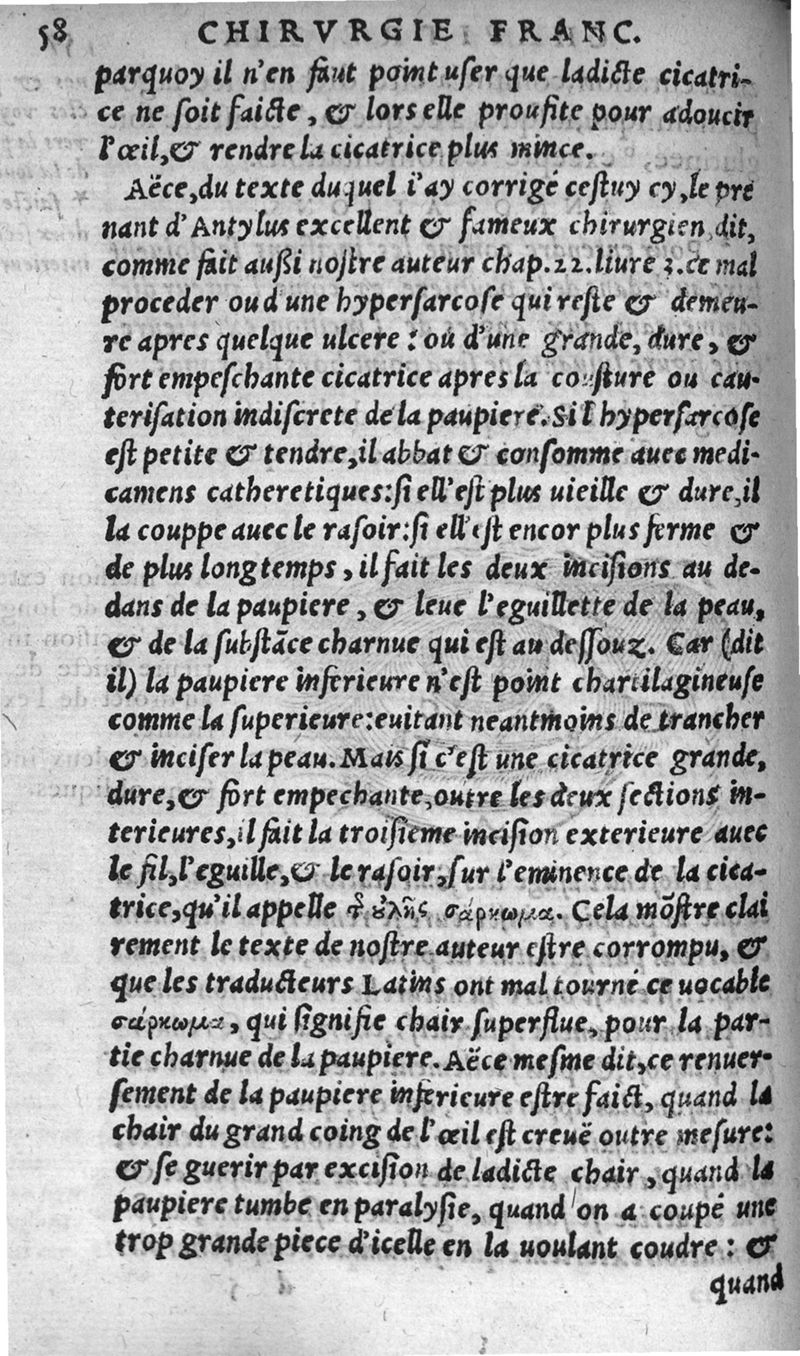 58 CHIRVRGIE FRANC.
parquoy il n'en faut point user que ladicte cicatri-
ce ne ſoit faicte, & lors elle proufite pour adoucir
l'œil, & rendre la cicatrice plus mince.
Aëce, du texte duquel i'ay corrigé ceſtuy cy, le pre
nant d'Antylus excellent & fameux chirurgien, dit,
comme fait außi noſtre auteur chap. 22. liure 3. ce mal
proceder ou d'une hyperſarcoſe qui reſte & demeu-
re apres quelque ulcere: ou d'une grande, dure, &
fort empeſchante cicatrice apres la couſture ou cau-
teriſation indiſcrete de la paupiere. Si l'hyperſarcoſe
eſt petite & tendre, il abbat & conſomme auec medi-
camens catheretiques: ſi ell'eſt plus uieille & dure, il
la couppe auec le raſoir: ſi ell'eſt encor plus ferme &
de plus long temps, il fait les deux inciſions au de-
dans de la paupiere, & leue l'eguillette de la peau,
& de la ſubſtãce charnue qui eſt au deſſouz. Car (dit
il) la paupiere inferieure n'eſt point chartilagineuse
comme la ſuperieure: euitant neantmoins de trancher
& inciſer la peau. Mais ſi c'eſt une cicatrice grande,
dure, & fort empechante, outre les deux ſections in-
terieures, il fait la troiſieme inciſion exterieure auec
le fil, l'eguille, & le raſoir, ſur l'eminence de la cica-
trice, qu'il appelle τ̃ ȣ̓λῆς σάρκωμα. Cela mõſtre clai
rement le texte de noſtre auteur eſtre corrompu, &
que les traducteurs Latins ont mal tourné ce uocable
σάρκωμα, qui ſignifie chair ſuperflue, pour la par-
tie charnue de la paupiere. Aëce meſme dit, ce renuer-
ſement de la paupiere inferieure eſtre faict, quand la
chair du grand coing de l'œil eſt creuë outre meſure:
& ſe guerir par exciſion de ladicte chair, quand la
paupiere tumbe en paralyſie, quand on a coupé une
trop grande piece d'icelle en la uoulant coudre: &
quand